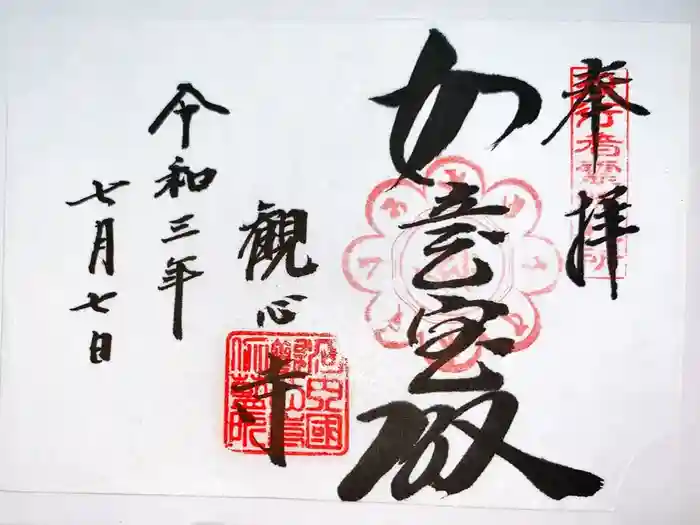 奉拝
如意宝殿
観心寺
令和三年
七月七日